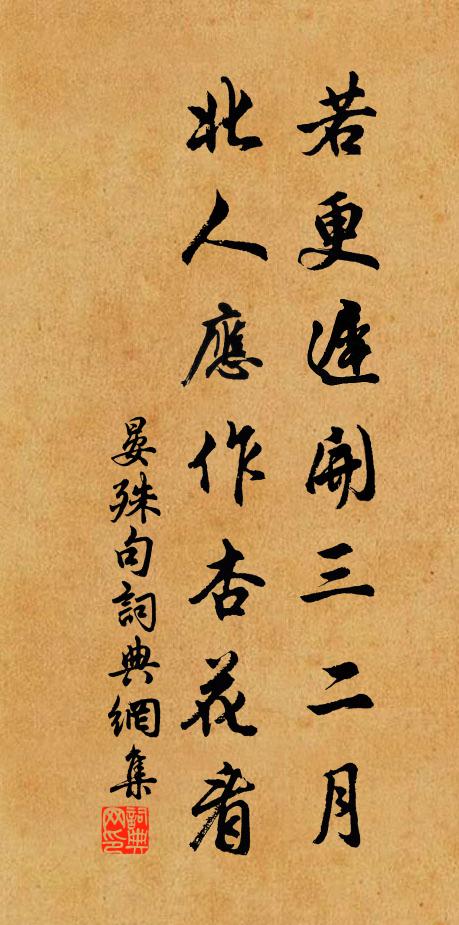 若更遲開三二月
北人應作杏花看
晏殊句詞典網集
詞典網印